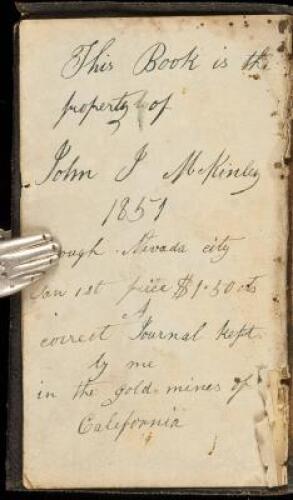 This Book is the
property of
John J McKinley
1851
ough Nevada city
Jan 1st price $1.50 cts
A
correct Journal kept
by me
in the gold mines of
California